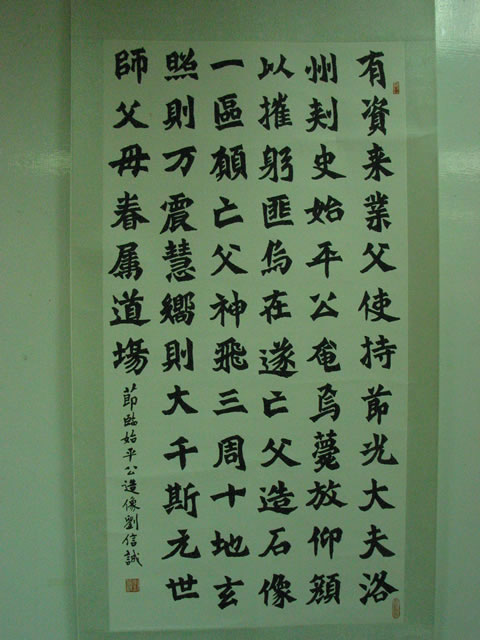 有資来業父使持莭光大夫洛
州刾史始平公奄焉薨放仰顔
以摧躬匪烏在遂亡父造石像
一區願亡父神飛三周十地玄
照則万震慧嚮則大千斯元世
師父母眷属道場
莭臨始平公造像劉信誠